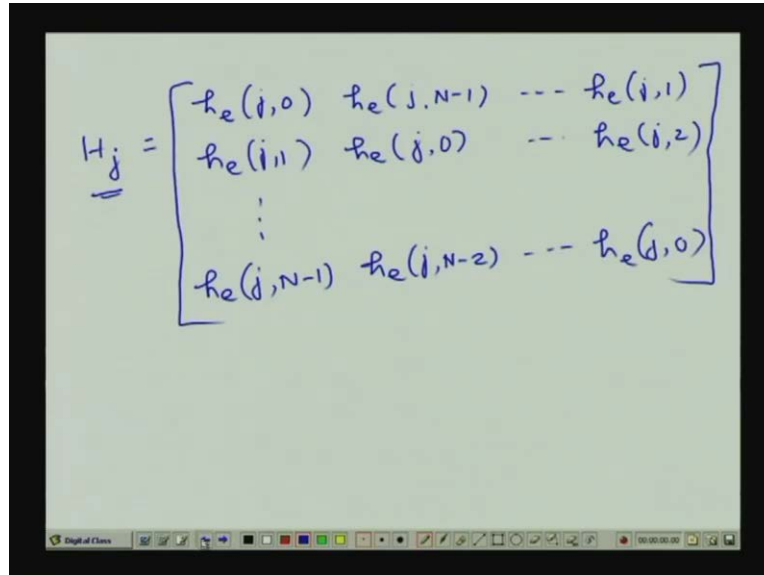 h_e(j,0) h_e(j,N-1) --- h_e(j,1)
H_j = h_e(j,1) h_e(j,0) --- h_e(j,2)
⋮
h_e(j,N-1) h_e(j,N-2) --- h_e(j,0)
Digital Class 00:00:00.00